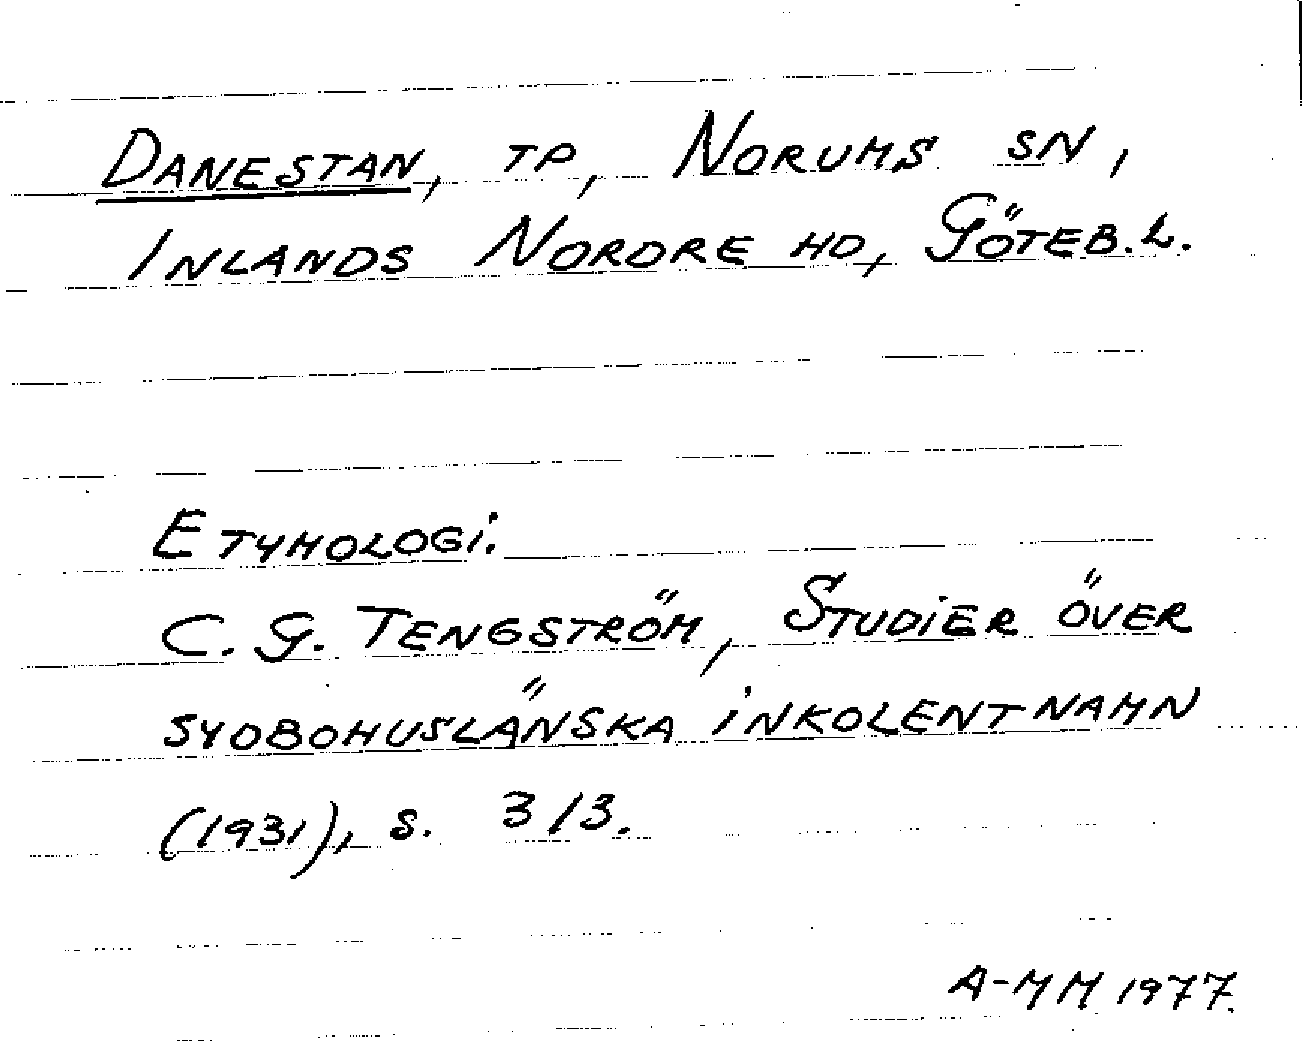 DANESTAN, TP, NORUMS SN,
INLANDS NORDRE HD, GÖTEB.L.
ETYMOLOGI.
C. G. TENGSTRÖM, STUDIER ÖVER
SYDBOHUSLÄNSKA INKOLENTNAMN
(1931), S. 313.
A-MM 1977.